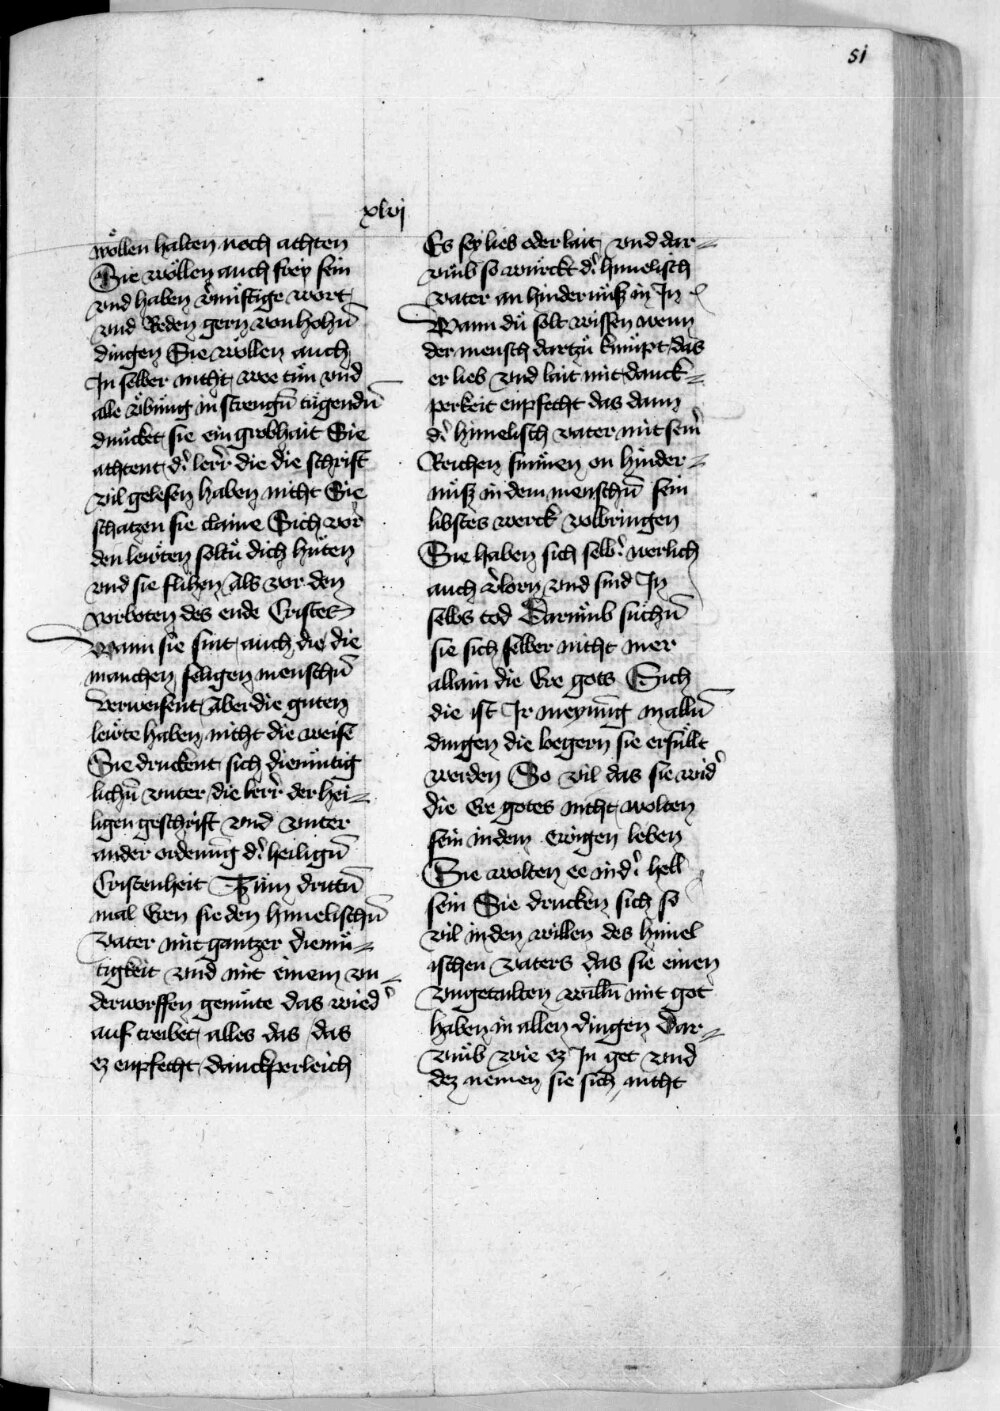 51
xlvj
wöllen halten noch achten
Sie wöllen auch frey sein
vnd haben v̈rnüftige wort
vnd Reden gern von hohen̄
dingen Sie wöllen auch
In selber nicht wee tün vnd
alle v̈büng in strengen̄ tügenden̄
dmücket sie ein grobhait Sie
achtent d' lerr' die die schrift
vil gelesen haben nicht Sie
schatzen sie claine Sich vor
den lewten soltü dich hüten
vnd sie flihen als vor den
vorboten des ende Cristes
Wann sie sint auch die die
manchen seligen menschen̄
verweisent Aber die guten
lewte haben nicht die weise
Sie druckent sich diemütig
lichen̄ vnter die lerr' der hei=
ligen geschrift vnd vnter
ander ordenung d' heiligen̄
Cristenheit Züm dritten̄
mal Eren sie den himelischen̄
vater mit gantzer diemü=
tigkeit vnd mit einem vn=
derworffen gemüte das wied'
auf treibet alles das das
ez enpfecht danckperleich
Es sey lieb oder lait vnd dar=
vmb so würckt d' himelisch
vater an hindernüß in In
Wann dü solt wissen wenn
der mensch dartzü kumpt das
er lieb vnd lait mit danck=
perkeit enpfecht das dann
d' himelisch vater mit sein'
Reichen sinnen on hinder=
nüß in dem menschen̄ sein
libstes werck volbringen
Sie haben sich selb' werlich
auch v'lorn vnd sind In
selbs tod Darumb suchen̄
sie sich selber nicht mer
allain die Ere gots Sich
die ist Ir meynung in allen̄
dingen die begern sie erfüllt
werden So vil das sie wid'
die Ere gotes nicht wolten
sein in dem ewigen leben
Sie wolten ee in d' hell
sein Sie drucken sich so
vil in den willen des himel
ischen vaters das sie einen
vngetailten willen̄ mit got
haben in allen dingen Dar=
vmb wie ez In get vnd
dez nemen sie sich nicht